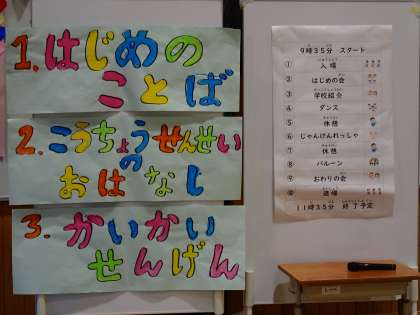 1. はじめの
ことば
2. こうちょうせんせい
の
おはなし
3. かいかい
せんげん
9時35分 スタート
① 入場
② はじめの会
③ 学校紹介
④ ダンス
⑤ 休憩
⑥ じゃんけんれっしゃ
⑦ 休憩
⑧ バルーン
⑨ おわりの会
⑩ 退場
11時35分 終了予定